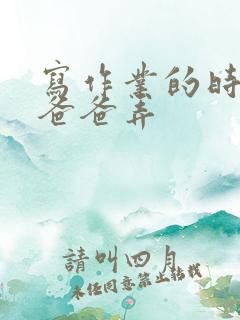 寫作業的時
爸爸弄
請叫四月
未經同意禁止轉載